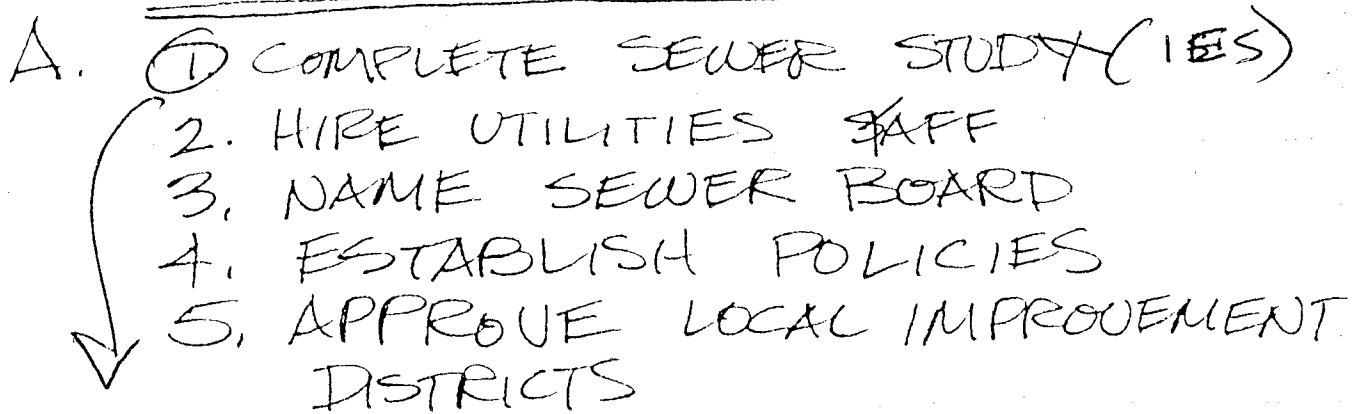 A. ① COMPLETE SEWER STUDY (IES)
2. HIRE UTILITIES STAFF
3. NAME SEWER BOARD
4. ESTABLISH POLICIES
5. APPROVE LOCAL IMPROVEMENT
DISTRICTS